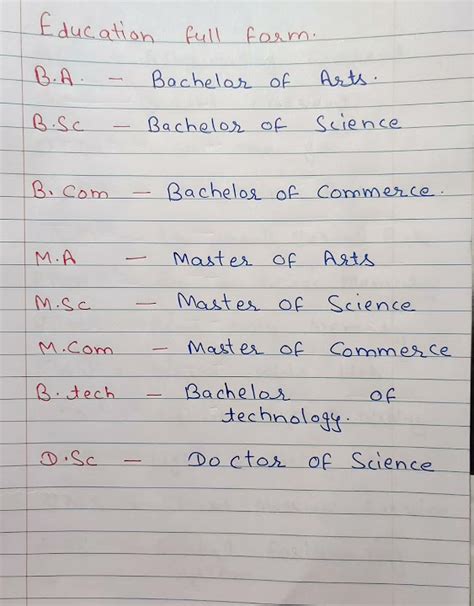 Education full form.
B.A. - Bachelor of Arts.
B.Sc - Bachelor of Science
B. Com - Bachelor of Commerce.
M.A - Master of Arts
M.Sc - Master of Science
M.Com - Master of Commerce
B.tech - Bachelor of
technology.
D.Sc - Doctor of Science